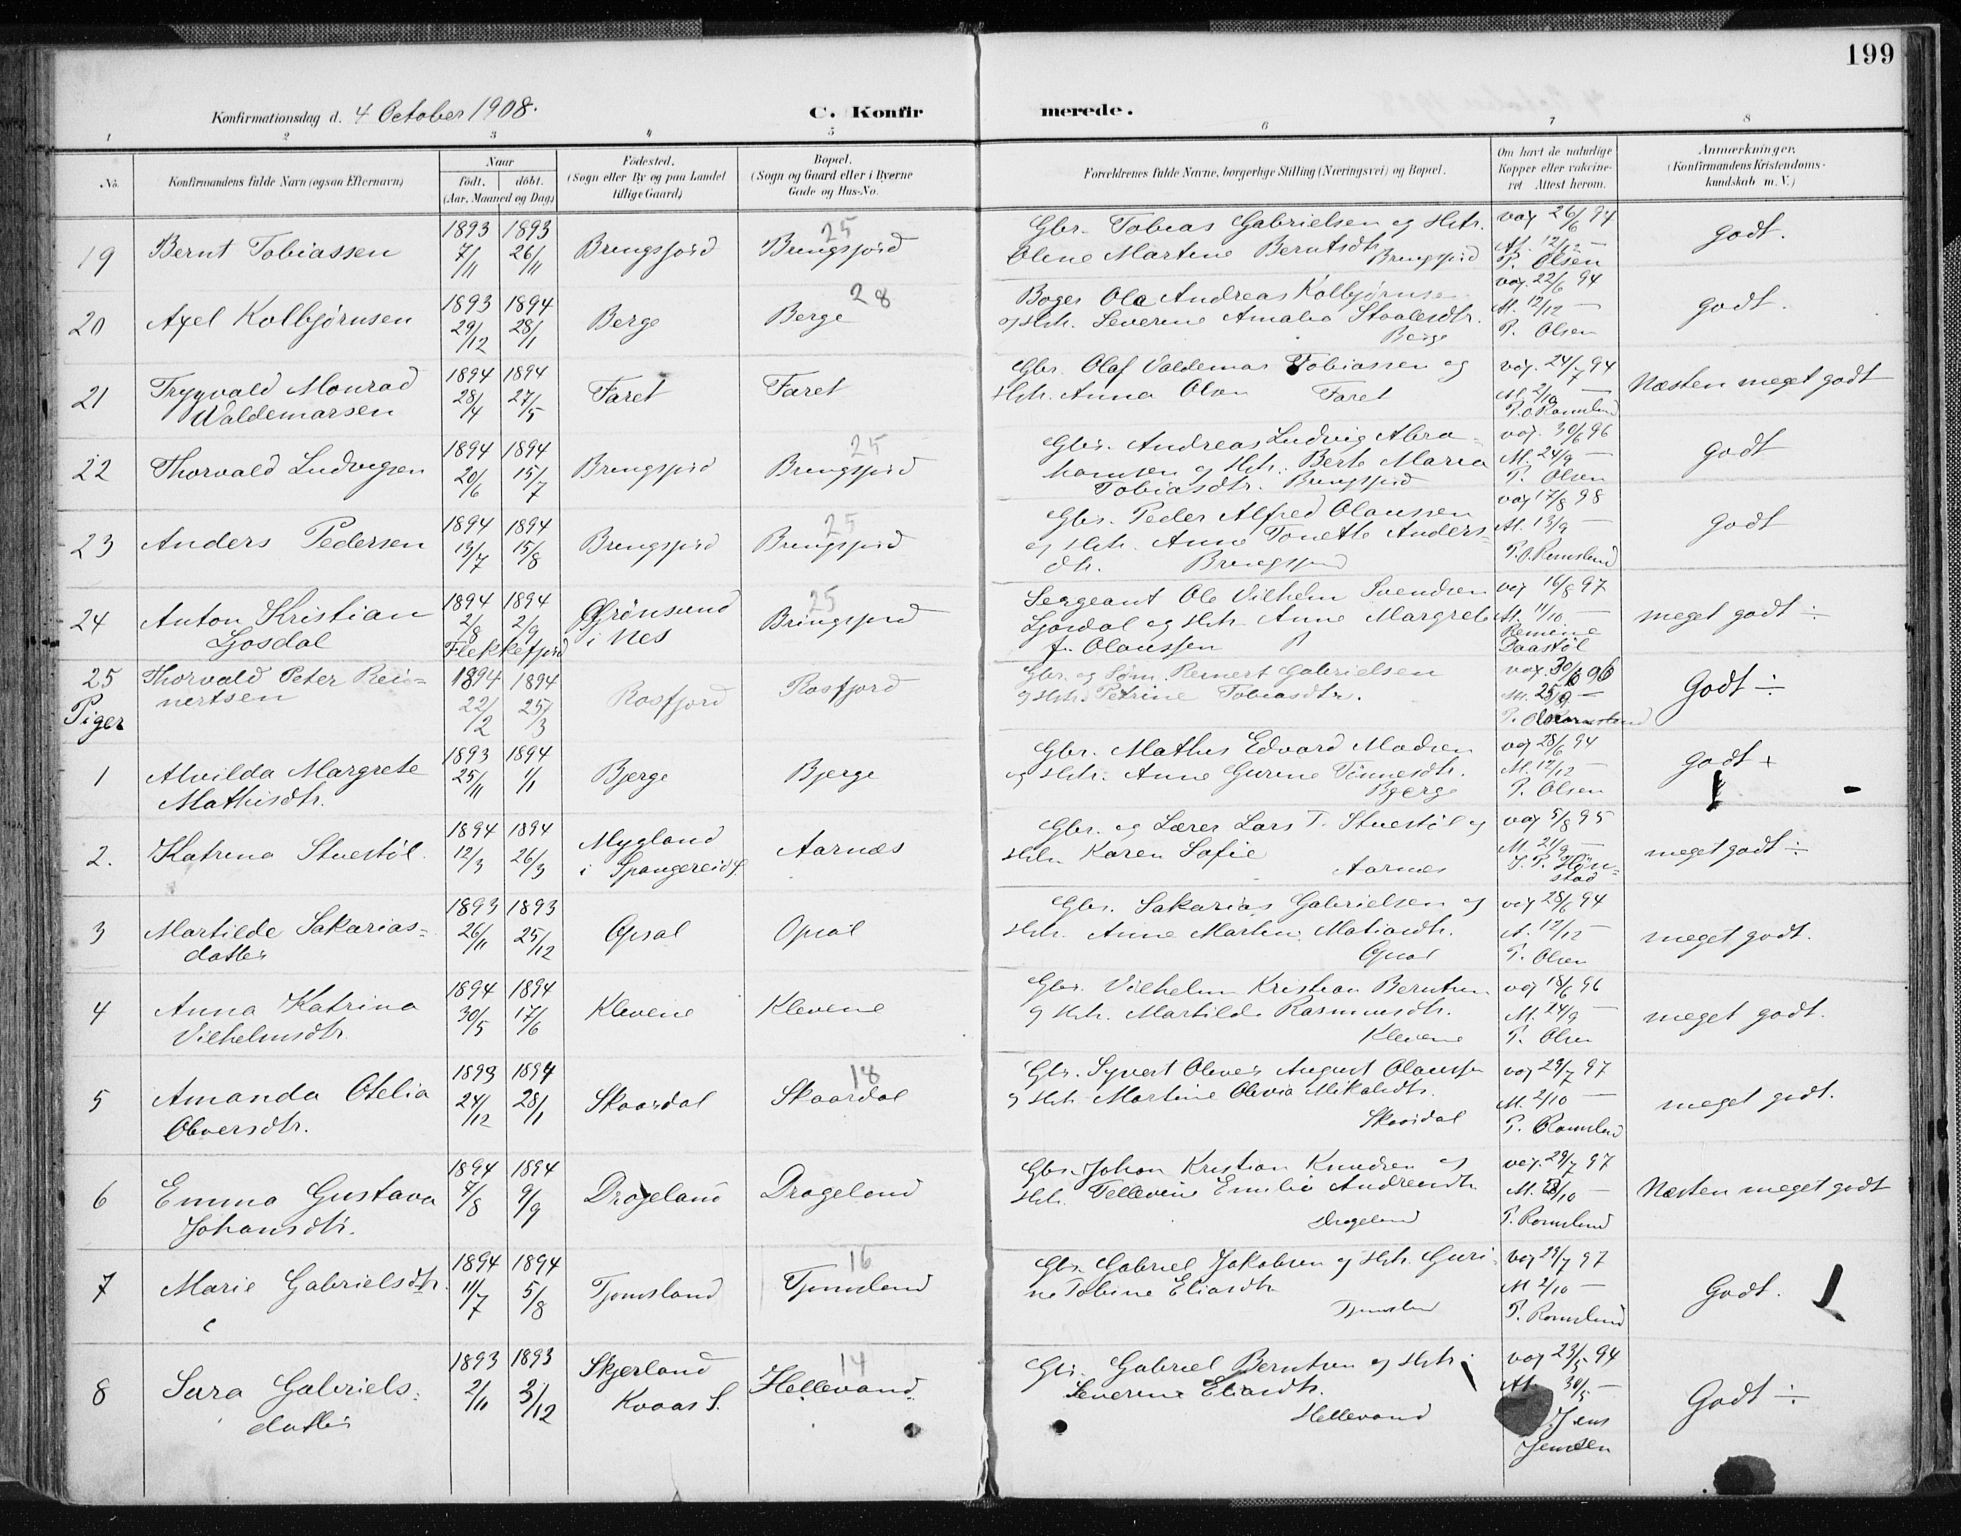 199
Konfirmationsdag d. 4 October 1908.
C. Konfirmerede.
1 2 3 4 5 6 7 8
No. Konfirmandens fulde Navn (ogsaa Efternavn)
Naar
födt. döbt.
(Aar, Maaned og Dag)
Födested.
(Sogn eller By og paa Landet
tillige Gaard)
Bopæl.
(Sogn og Gaard eller i Byerne
Gade og Hus-No.
Forældrenes fulde Navne, borgerlige Stilling (Næringsvei) og Bopæl.
Om havt de naturlige
Kopper eller vakcine-
ret Attest herom.
Anmærkninger.
(Konfirmandens Kristendoms-
kundskab m. V.)
19 Bernt Tobiassen
1893 1893
7/11 26/11
Bringsfjord
25
Bringsfjord
Gbr. Tobias Gabrielsen og Hstr.
Oline Martine Berntsdtr. Bringsfjord
vax 26/6 94
At. 12/12 —
T. Olsen
godt.
20 Axel Kolbjørnsen
1893 1894
29/12 28/1
Berge
28
Berge
Ola Andreas Kolbjørnsen
og Hstr. Severine Amalia Staalesdtr.
Berge
vax. 22/6 94
At. 12/12 —
T. Olsen
godt.
21 Trygvald Monrad
Valdemarsen
1894 1894
28/4 27/5
Faret
Faret
Gbr. Olaf Valdemar Tobiassen og
Hstr. Anna Olsen Faret
vax. 24/7 94
At. 2/10 —
T. O. Romslund
Næsten meget godt
22 Thorvald Ludvigsen
1894 1894
20/6 15/7
Bringsfjord
25
Bringsfjord
Gbr. Andreas Ludvig Abra-
hamsen og Hstr. Berte Maria
Tobiasdtr. Bringsfjord
vax. 30/6 96
At. 24/9 —
T. Olsen
godt
23 Anders Pedersen
1894 1894
13/7 15/8
Bringsfjord
25
Bringsfjord
Gbr. Peder Alfred Olaussen
og Hstr. Anne Tonette Anders-
dtr. Bringsfjord
vax 17/8 98
At. 13/9 —
T. O. Romslund
Godt
24 Anton Kristian
Ljosdal
1894 1894
2/8 2/9
Flekkefjord
Grønsund
i Nes
25
Bringsfjord
Sergeant Ole Vilhelm Svendsen
Ljosdal og Hstr. Anne Margrete
f. Olaussen
vax 16/8 97
At. 11/10 —
Daastøl
meget godt ÷
25 Thorvald Peter Rei-
nertsen
1894 1894
22/2 25/3
Rosfjord
Rosfjord
Gbr. og Søm. Reinert Gabrielsen
og Hstr. Petrine Tobiasdtr.
vax 30/6 96
At. 25/9 —
T. O. Romslund
Godt ÷
Piger
1 Alvilda Margrete
Mathisdtr.
1893 1894
25/11 1/1
Bjerge
Bjerge
Gbr. Mathis Edvard Madsen
og Hstr. Anne Gurine Tønnesdtr.
Bjerge
vax 28/6 94
At. 12/12 —
T. Olsen
godt +
2. Katrina Stuestøl.
1894 1894
12/3 26/3
Mygland
i Spangereid S.
Aarnæs
Gbr. og Lærer Lars T. Stuestøl og
Hstr. Karen Sofie
Aarnæs
vax 5/8 95
At. 21/9 —
meget godt ÷
3 Martilde Sakarias-
datter
1893 1893
26/11 25/12
Opsal
Opsal
Gbr. Sakarias Gabrielsen og
Hstr. Anne Martine Matiasdtr.
Opsal
vax 28/6 94
At. 12/12 —
T. Olsen
meget godt.
4 Anna Katrina
Vilhelmsdtr.
1894 1894
30/5 17/6
Klevene
Klevene
Gbr. Vilhelm Kristian Berntsen
og Hstr. Martilde Rasmusdtr.
Klevene
vax 18/6 96
At. 24/9 —
T. Olsen
meget godt.
5 Amanda Otelia
Olversdtr.
1893 1894
24/12 28/1
Skaardal
18
Skaardal
Gbr. Syvert Oliver August Olaussen
og Hstr. Martine Olevia Mikalsdtr.
Skaardal
vax 29/7 97
At. 2/10 —
T. Romslund
meget godt.
6 Emma Gustava
Johansdtr.
1894 1894
7/8 9/9
Drageland
Drageland
Gbr. Johan Kristian Knudsen og
Hstr. Tellevine Emilie Andreasdtr.
Drageland
vax. 29/7 97
At. 2/10 —
T. Romslund
Næsten meget godt
7 Marie Gabrielsdtr.
1894 1894
11/7 5/8
Tjomsland
16
Tjomsland
Gbr. Gabriel Jakobsen og Hstr. Guri-
ne Tobine Eliasdtr.
Tjomsland
vax 29/7 97
At. 2/10 —
T. Romslund
Godt.
8 Sara Gabriels-
datter
1893 1893
2/11 3/12
Skjerland
Kvaas S.
14
Hellevand.
Gbr. Gabriel Berntsen og Hstr.
Severine Eliasdtr.
Hellevand
vax 23/5 94
At. 30/5 —
Jens
Jensen
Godt ÷